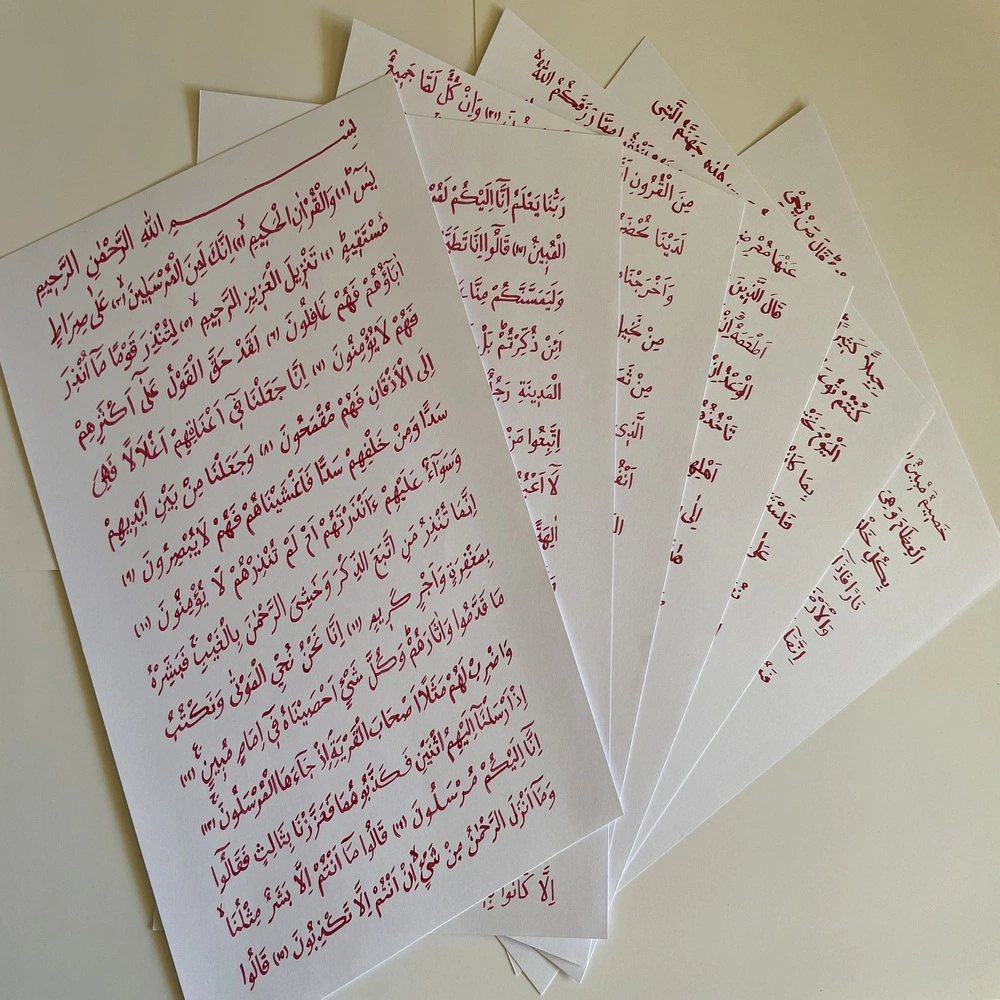 بِسْـــمِ اللهِ الرَّحْمٰنِ الرَّحِيمِ
يٰسٓ (١) وَالْقُرْاٰنِ الْحَكِيمِ (٢) اِنَّكَ لَمِنَ الْمُرْسَلِينَ (٣) عَلٰى صِرَاطٍ
مُسْتَقِيمٍ (٤) تَنْزِيلَ الْعَزِيزِ الرَّحِيمِ (٥) لِتُنْذِرَ قَوْمًا مَٓا اُنْذِرَ
اٰبَٓاؤُ۬هُمْ فَهُمْ غَافِلُونَ (٦) لَقَدْ حَقَّ الْقَوْلُ عَلٰٓى اَكْثَرِهِمْ
فَهُمْ لَا يُؤْمِنُونَ (٧) اِنَّا جَعَلْنَا فِٓي اَعْنَاقِهِمْ اَغْلَالًا فَهِيَ
اِلَى الْاَذْقَانِ فَهُمْ مُقْمَحُونَ (٨) وَجَعَلْنَا مِنْ بَيْنِ اَيْدِيهِمْ
سَدًّا وَمِنْ خَلْفِهِمْ سَدًّا فَاَغْشَيْنَاهُمْ فَهُمْ لَا يُبْصِرُونَ (٩)
وَسَوَٓاءٌ عَلَيْهِمْ ءَاَنْذَرْتَهُمْ اَمْ لَمْ تُنْذِرْهُمْ لَا يُؤْمِنُونَ (١٠)
اِنَّمَا تُنْذِرُ مَنِ اتَّبَعَ الذِّكْرَ وَخَشِيَ الرَّحْمٰنَ بِالْغَيْبِ فَبَشِّرْهُ
بِمَغْفِرَةٍ وَاَجْرٍ كَرِيمٍ (١١) اِنَّا نَحْنُ نُحْيِ الْمَوْتٰى وَنَكْتُبُ
مَا قَدَّمُوا وَاٰثَارَهُمْ وَكُلَّ شَيْءٍ اَحْصَيْنَاهُ فِٓي اِمَامٍ مُبِينٍ (١٢)
وَاضْرِبْ لَهُمْ مَثَلًا اَصْحَابَ الْقَرْيَةِ اِذْ جَٓاءَهَا الْمُرْسَلُونَ (١٣)
اِذْ اَرْسَلْنَٓا اِلَيْهِمُ اثْنَيْنِ فَكَذَّبُوهُمَا فَعَزَّزْنَا بِثَالِثٍ فَقَالُٓوا
اِنَّٓا اِلَيْكُمْ مُرْسَلُونَ (١٤) قَالُوا مَٓا اَنْتُمْ اِلَّا بَشَرٌ مِثْلُنَا
وَمَٓا اَنْزَلَ الرَّحْمٰنُ مِنْ شَيْءٍ اِنْ اَنْتُمْ اِلَّا تَكْذِبُونَ (١٥) قَالُوا
رَبُّنَا يَعْلَمُ اِنَّٓا اِلَيْكُمْ
الْمُبِينُ (١٧) قَالُٓوا اِنَّا
وَلَيَمَسَّنَّكُمْ مِنَّا
اَئِنْ ذُكِّرْتُمْ بَلْ
الْمَدِينَةِ
اِتَّبِعُوا
لَٓا
اِلَّا كَانُوا
وَاِنْ كُلٌّ لَمَّا جَمِيعٌ
مِنَ الْقُرُونِ
لَدَيْنَا
مِنْ
مِنْ
الَّذِي
مِمَّا رَزَقَكُمُ اللّٰهُ
عَنْهَا
قَالَ الَّذِينَ
هٰذِهِ جَهَنَّمُ الَّتِي
جِبِلًّا
كُنْتُمْ
اَلْيَوْمَ
بِمَا
وَقَالَ مَنْ يُحْيِ
خَصِيمٌ مُبِينٌ
الْعِظَامَ وَهِيَ
بِكُلِّ
نَارًا فَاِذَٓا